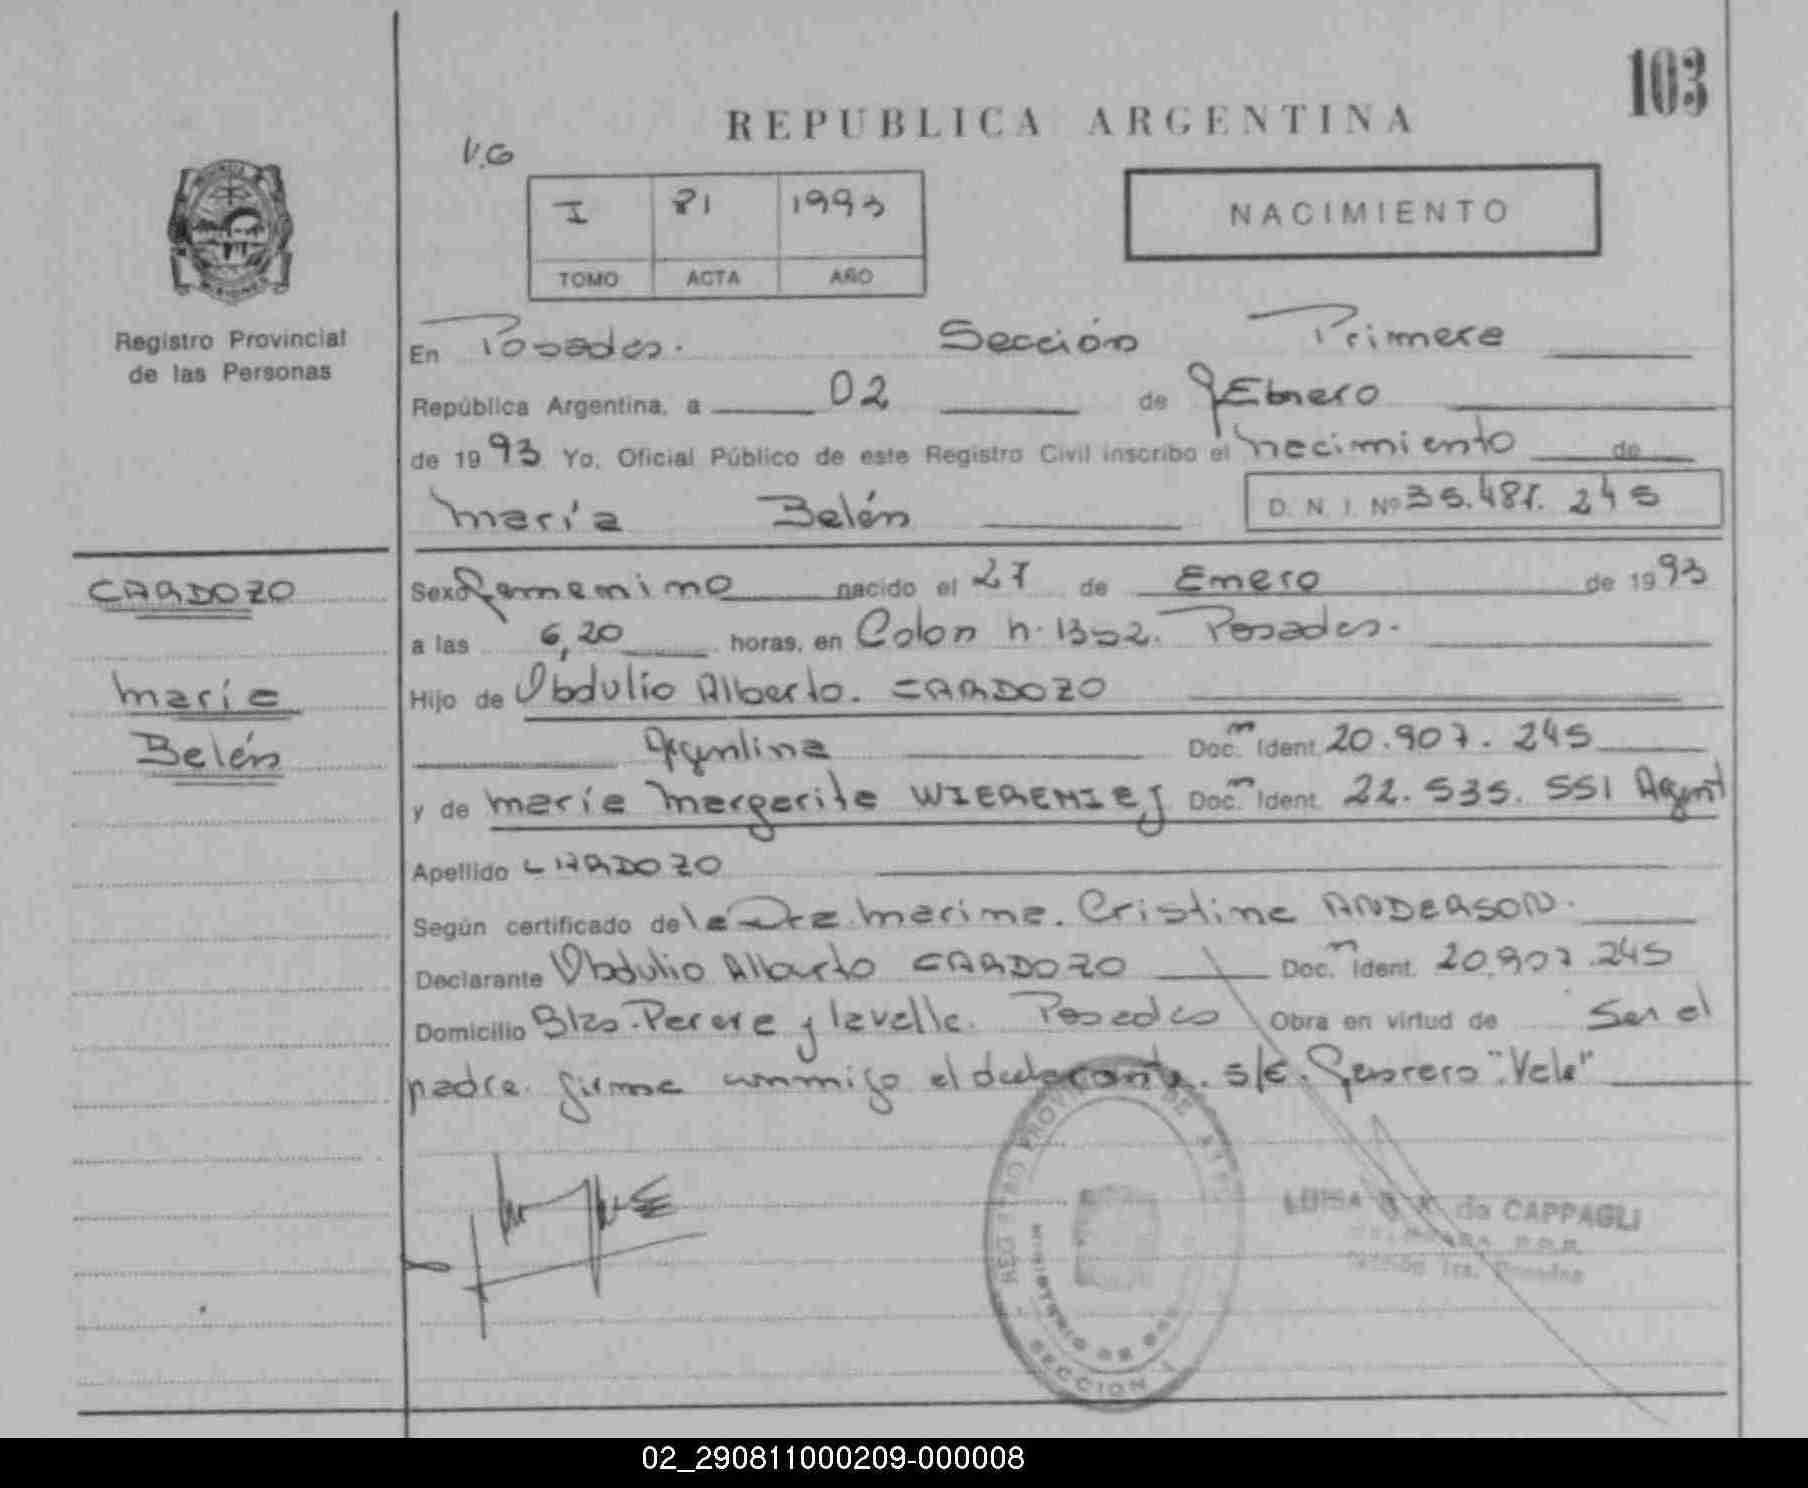 103
REPUBLICA ARGENTINA
V.G
I 81 1993
TOMO ACTA AÑO
NACIMIENTO
Registro Provincial
de las Personas
En Posadas. Sección Primera
República Argentina, a 02 de Febrero
de 1993 Yo, Oficial Público de este Registro Civil inscribo el nacimiento de
María Belén D. N. I. Nº
CARDOZO
María
Belén
Sexo Femenino nacido el 27 de Enero de 1993
a las 6,20 horas, en Colon n. Posadas.
Hijo de Obdulio Alberto. CARDOZO
Argentina Doc. Ident. 20.907.245
y de María Margarita WIEREMIEJ Doc. Ident. 22.535.551 Argent
Apellido CARDOZO
Según certificado de la Dra. Marina. Cristina ANDERSON.
Declarante Obdulio Alberto CARDOZO Doc. Ident. 20.907.245
Domicilio y lavalle. Posadas Obra en virtud de Ser el
padre. firma conmigo el declarante. s/e. Febrero "Vale"
LUISA de CAPPAGLI
SECCION 1
02_290811000209-000008